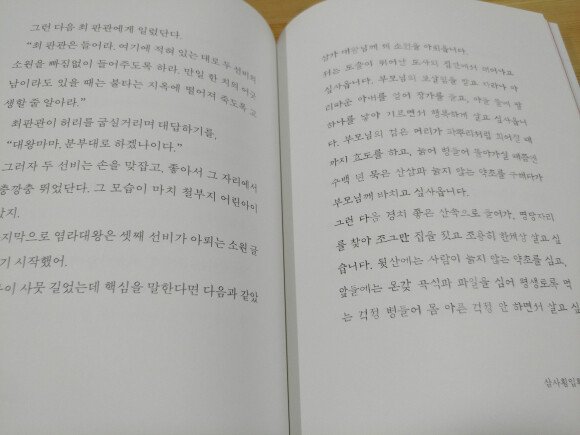 그런 다음 최 판관에게 일렀단다.
"최 판관은 들어라. 여기에 적혀 있는 대로 두 선비의
소원을 빠짐없이 들어주도록 하라. 만일 한 치의 어긋
남이라도 있을 때는 불타는 지옥에 떨어져 죽도록 고
생할 줄 알아라."
최판관이 허리를 굽실거리며 대답하기를,
"대왕마마, 분부대로 하겠나이다."
그러자 두 선비는 손을 맞잡고, 좋아서 그 자리에서
충깡충 뛰었단다. 그 모습이 마치 철부지 어린아이
았지.
지막으로 염라대왕은 셋째 선비가 아뢰는 소원 글
기 시작했어.
이 사뭇 길었는데 핵심을 말한다면 다음과 같았
대왕님께 제 소원을 아뢰옵니다.
저는 도술이 뛰어난 도사의 집안에서 태어나고
싶사옵니다. 부모님의 보살핌을 받고 자라나 아
리따운 아내를 얻어 장가를 들고, 아들 둘에 딸
하나를 낳아 기르면서 행복하게 살고 싶사옵니
다. 부모님의 검은 머리가 파뿌리처럼 희어질 때
까지 효도를 하고, 늙어 병들어 돌아가실 때쯤엔
수백 년 묵은 산삼과 늙지 않는 약초를 구해다가
부모님께 바치고 싶사옵니다.
그런 다음 경치 좋은 산속으로 들어가,
를 찾아 조그만 집을 짓고 조용히 한세상 살고 싶
습니다. 뒷산에는 사람이 늙지 않는 약초를 심고,
앞들에는 온갖 곡식과 과일을 심어 평생토록 먹
는 걱정 병들어 몸 아픈 걱정 안 하면서 살고 싶
삼사횡입